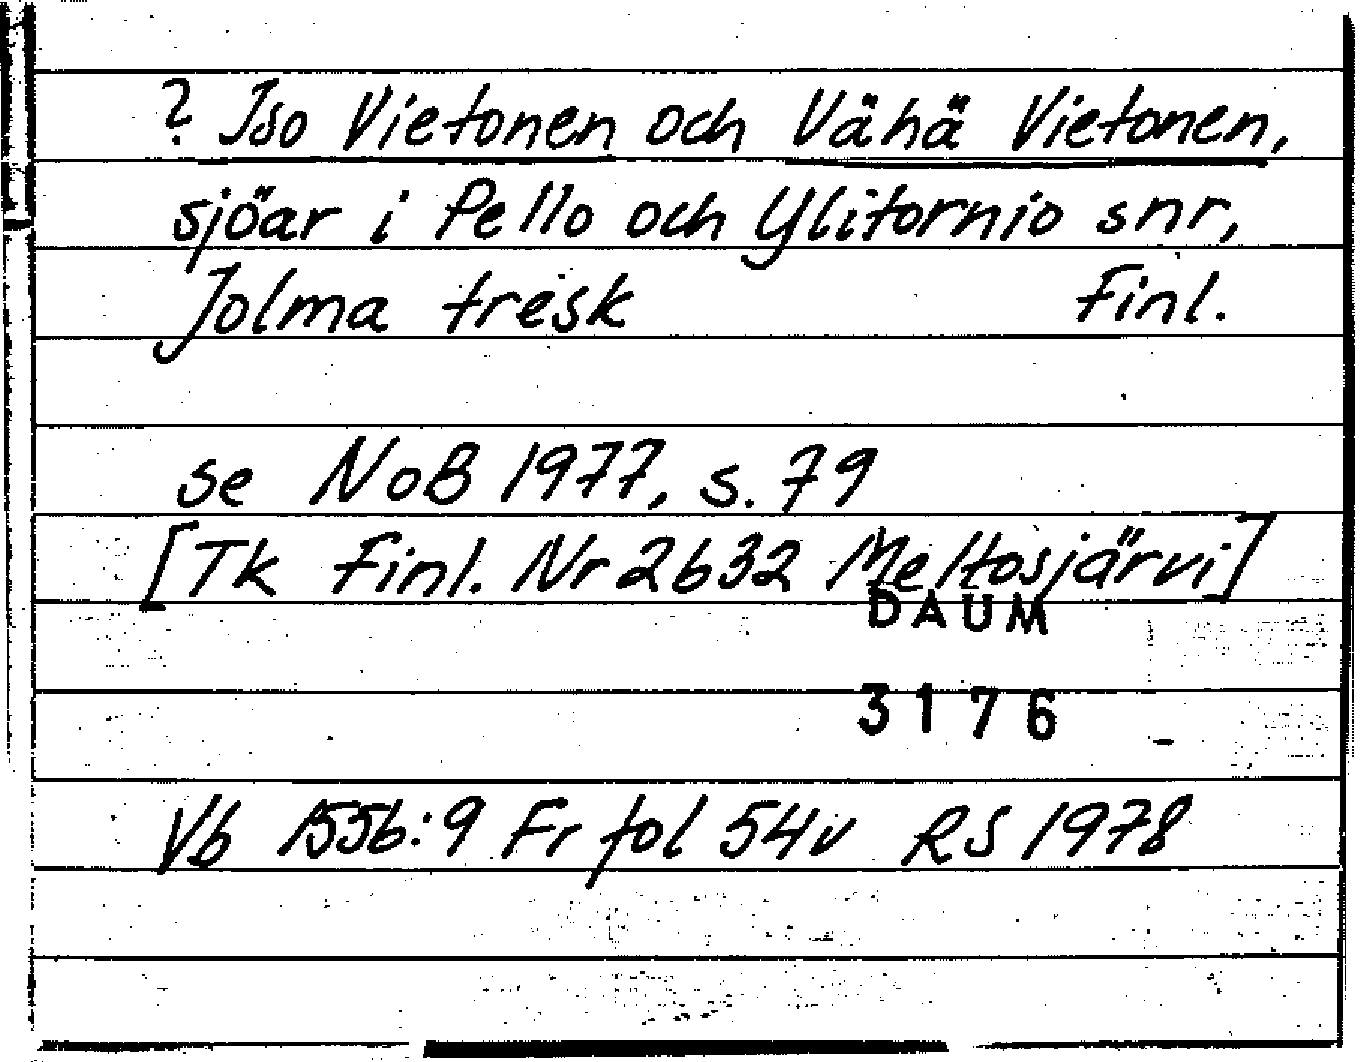 ? Iso Vietonen och Vähä Vietonen,
sjöar i Pello och Ylitornio snr,
Jolma tresk Finl.
se NoB 1977, s. 79
[Tk Finl. Nr 2632 Meltosjärvi]
DAUM
3176
Vb 1556:9 Fr fol 54v RS 1978